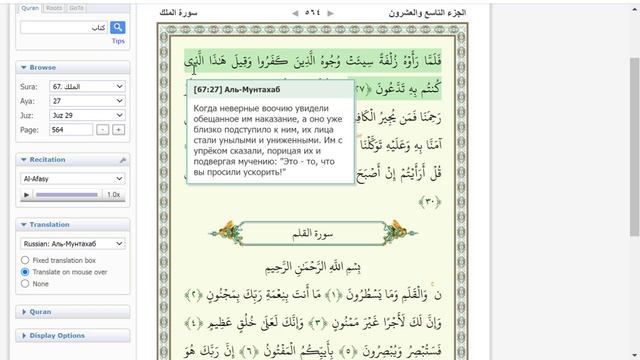 Quran Roots GoTo
كتاب
Tips
Browse
Sura: 67. الملك
Aya: 27
Juz: Juz 29
Page: 564 - +
Recitation
Al-Afasy
1.0x
Translation
Russian: Аль-Мунтахаб
Fixed translation box
Translate on mouse over
None
Quran
Display Options
سورة الملك ٥٦٤ الجزء التاسع والعشرون
فَلَمَّا رَأَوْهُ زُلْفَةً سِيئَتْ وُجُوهُ الَّذِينَ كَفَرُوا وَقِيلَ هَٰذَا الَّذِي
كُنتُم بِهِ تَدَّعُونَ ﴿٢٧﴾
رَحِمَنَا فَمَن يُجِيرُ الْكَافِ
آمَنَّا بِهِ وَعَلَيْهِ تَوَكَّلْنَا
قُلْ أَرَأَيْتُمْ إِنْ أَصْبَحَ
﴿٣٠﴾
[67:27] Аль-Мунтахаб
Когда неверные воочию увидели
обещанное им наказание, а оно уже
близко подступило к ним, их лица
стали унылыми и униженными. Им с
упрёком сказали, порицая их и
подвергая мучению: "Это - то, что
вы просили ускорить!"
سورة القلم
بِسْمِ اللَّهِ الرَّحْمَٰنِ الرَّحِيمِ
ن ۚ وَالْقَلَمِ وَمَا يَسْطُرُونَ ﴿١﴾ مَا أَنتَ بِنِعْمَةِ رَبِّكَ بِمَجْنُونٍ ﴿٢﴾
وَإِنَّ لَكَ لَأَجْرًا غَيْرَ مَمْنُونٍ ﴿٣﴾ وَإِنَّكَ لَعَلَىٰ خُلُقٍ عَظِيمٍ ﴿٤﴾
فَسَتُبْصِرُ وَيُبْصِرُونَ ﴿٥﴾ بِأَييِّكُمُ الْمَفْتُونُ ﴿٦﴾ إِنَّ رَبَّكَ هُوَ